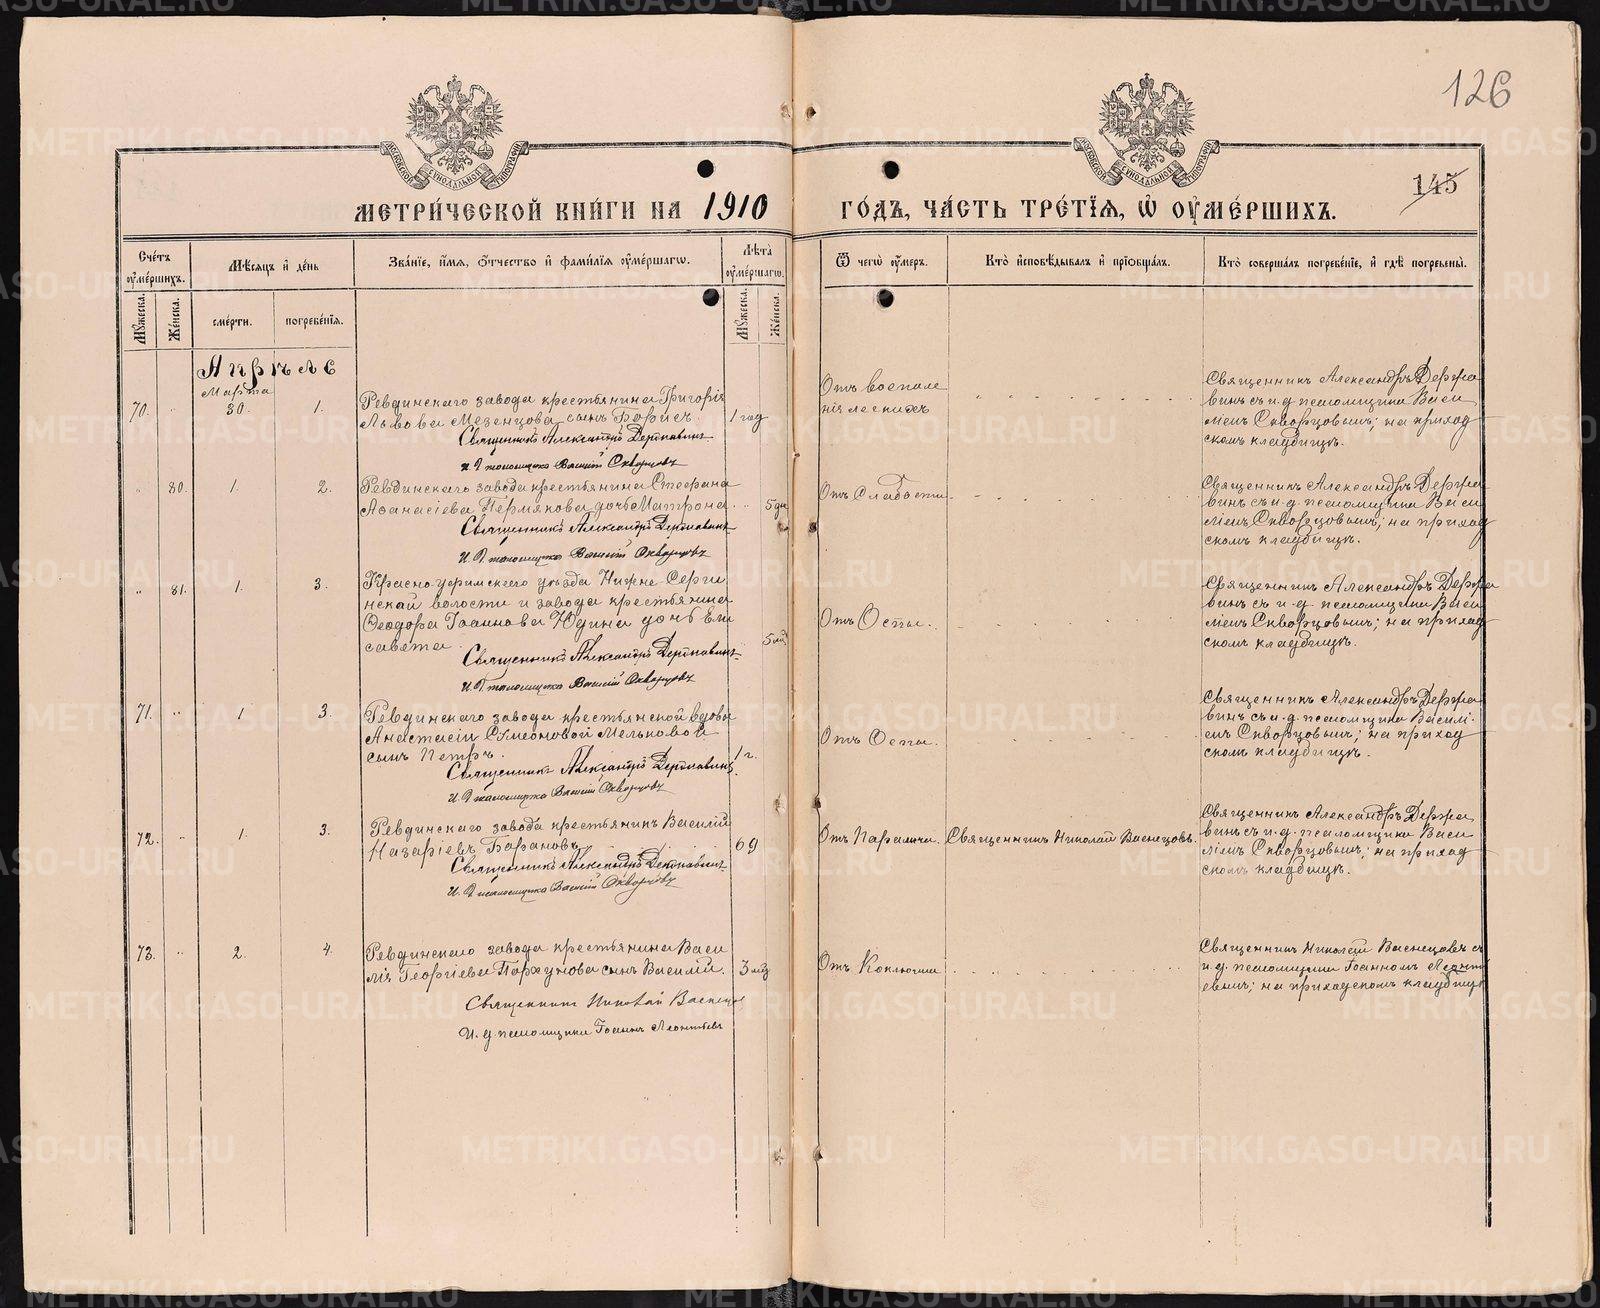 126
145
МОСКОВСКОЙ СѴНОДАЛЬНОЙ ТИПОГРАФІИ
МОСКОВСКОЙ СѴНОДАЛЬНОЙ ТИПОГРАФІИ
МЕТРИ́ЧЕСКОЙ КНИ́ГИ НА 1910 ГО́ДЪ, ЧА́СТЬ ТРЕ́ТІЯ, Ѡ҆ ОУ҆МЕ́РШИХЪ.
Сче́тъ оу҆ме́ршихъ.
Мѣ́сяцъ и҆ де́нь
Зва́ніе, и҆́мя, ѻ҆́тчество и҆ фами́лія оу҆ме́ршагѡ.
Лѣ́та оу҆ме́ршагѡ.
Ѿ чегѡ̀ оу҆́меръ.
Кто̀ и҆сповѣ́дывалъ и҆ прїѡбща́лъ.
Кто̀ соверша́лъ погребе́ніе, и҆ гдѣ̀ погребены̀.
Му́жеска.
Же́нска.
сме́рти.
погребе́нія.
Му́жеска.
Же́нска.
Апрѣле
Марта
70. 30. 1.
Ревдинскаго завода крестьянина Григорія
Львова Мезенцова сынъ Борисъ.
1 год
Священникъ Александръ Державинъ
И. д. псаломщика Василій Скворцовъ
Отъ воспале
нія легкихъ
Священникъ Александръ Держа
винъ съ и. д. псаломщика Васи
ліемъ Скворцовымъ; на приход
скомъ кладбищѣ.
80. 1. 2.
Ревдинскаго завода крестьянина Стефана
Аѳанасіева Пермякова дочь Матрона
5 дн
Священникъ Александръ Державинъ
И. д. псаломщика Василій Скворцовъ
Отъ Слабости
Священникъ Александръ Держа
винъ съ и. д. псаломщика Васи
ліемъ Скворцовымъ; на приход
скомъ кладбищѣ.
81. 1. 3.
Красноуфимскаго уѣзда Нижне-Серги
нской волости и завода крестьянина
Ѳеодора Іоаннова Юдина дочь Ели
савета
5 мд
Священникъ Александръ Державинъ
И. д. псаломщика Василій Скворцовъ
Отъ Оспы.
Священникъ Александръ Держа
винъ съ и. д. псаломщика Васи
ліемъ Скворцовымъ; на приход
скомъ кладбищѣ.
71. 1 3.
Ревдинскаго завода крестьянской вдовы
Анастасіи Сѵмеоновой Мельковой
сынъ Петръ.
1 г.
Священникъ Александръ Державинъ
И. д. псаломщика Василій Скворцовъ
Отъ Оспы.
Священникъ Александръ Держа
винъ съ и. д. псаломщика Василі-
емъ Скворцовымъ; на приход
скомъ кладбищѣ.
72. 1. 3.
Ревдинскаго завода крестьянинъ Василій
Назаріевъ Барановъ
69
Священникъ Александръ Державинъ
И. д. псаломщика Василій Скворцовъ
Отъ Параличи.
Священникъ Николай Васнецовъ.
Священникъ Александръ Держа
винъ съ и. д. псаломщика Васи
ліемъ Скворцовымъ; на приход
скомъ кладбищѣ.
73. 2. 4.
Ревдинскаго завода крестьянина Васи
лія Георгіева сынъ Василій.
3 мд
Священникъ Николай Васнецов
И. д. псаломщика Іоаннъ Леонтьевъ
Отъ Коклюша
Священникъ Николай Васнецовъ съ
и. д. псаломщика Іоанномъ Леонть
евымъ; на приходскомъ кладбищѣ
METRIKI.GASO-URAL.RU